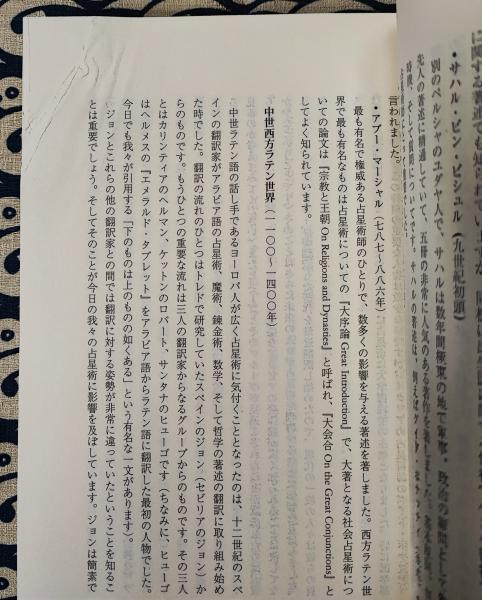 ・サハル・ビン・ビシュル（九世紀初頭）
別のペルシャのユダヤ人で、サハルは数年間極東の地で軍事・政治の顧問として
先人の著述に精通していて、五冊の非常に人気のある著作を著しました
時機、そして質問についてです。サハルの著述は、例えば
言われました。
・アブー・マーシャル（七八七～八八六年）
最も有名で権威ある占星術師のひとりで、数多くの影響を与える著述を著しました。西方ラテン世
界で最も有名なものは占星術についての『大序論 Great Introduction』で、大著となる社会占星術につ
いての論文は『宗教と王朝 On Religions and Dynasties』と呼ばれ、『大会合 On the Great Conjunctions』と
してよく知られています。
中世西方ラテン世界（一一〇〇～一四〇〇年）
中世ラテン語の話し手であるヨーロパ人が広く占星術に気付くこととなったのは、十二世紀のスペ
インの翻訳家がアラビア語の占星術、魔術、錬金術、数学、そして哲学の著述の翻訳に取り組み始め
た時でした。翻訳の流れのひとつはトレドで研究していたスペインのジョン（セビリアのジョン）か
らのものです。もうひとつの重要な流れは三人の翻訳家からなるグループからのものです。その三人
とはカリンティアのヘルマン、ケットンのロバート、サンタナのヒューゴです（ちなみに、ヒューゴ
はヘルメスの『エメラルド・タブレット』をアラビア語からラテン語に翻訳した最初の人物でした。
今日でも我々が引用する「下のものは上のものの如くある」という有名な一文があります）。
ジョンとこれらの他の翻訳家との間では翻訳に対する姿勢が非常に違っていたということを知るこ
とは重要でしょう。そしてそのことが今日の我々の占星術に影響を及ぼしています。ジョンは簡素で